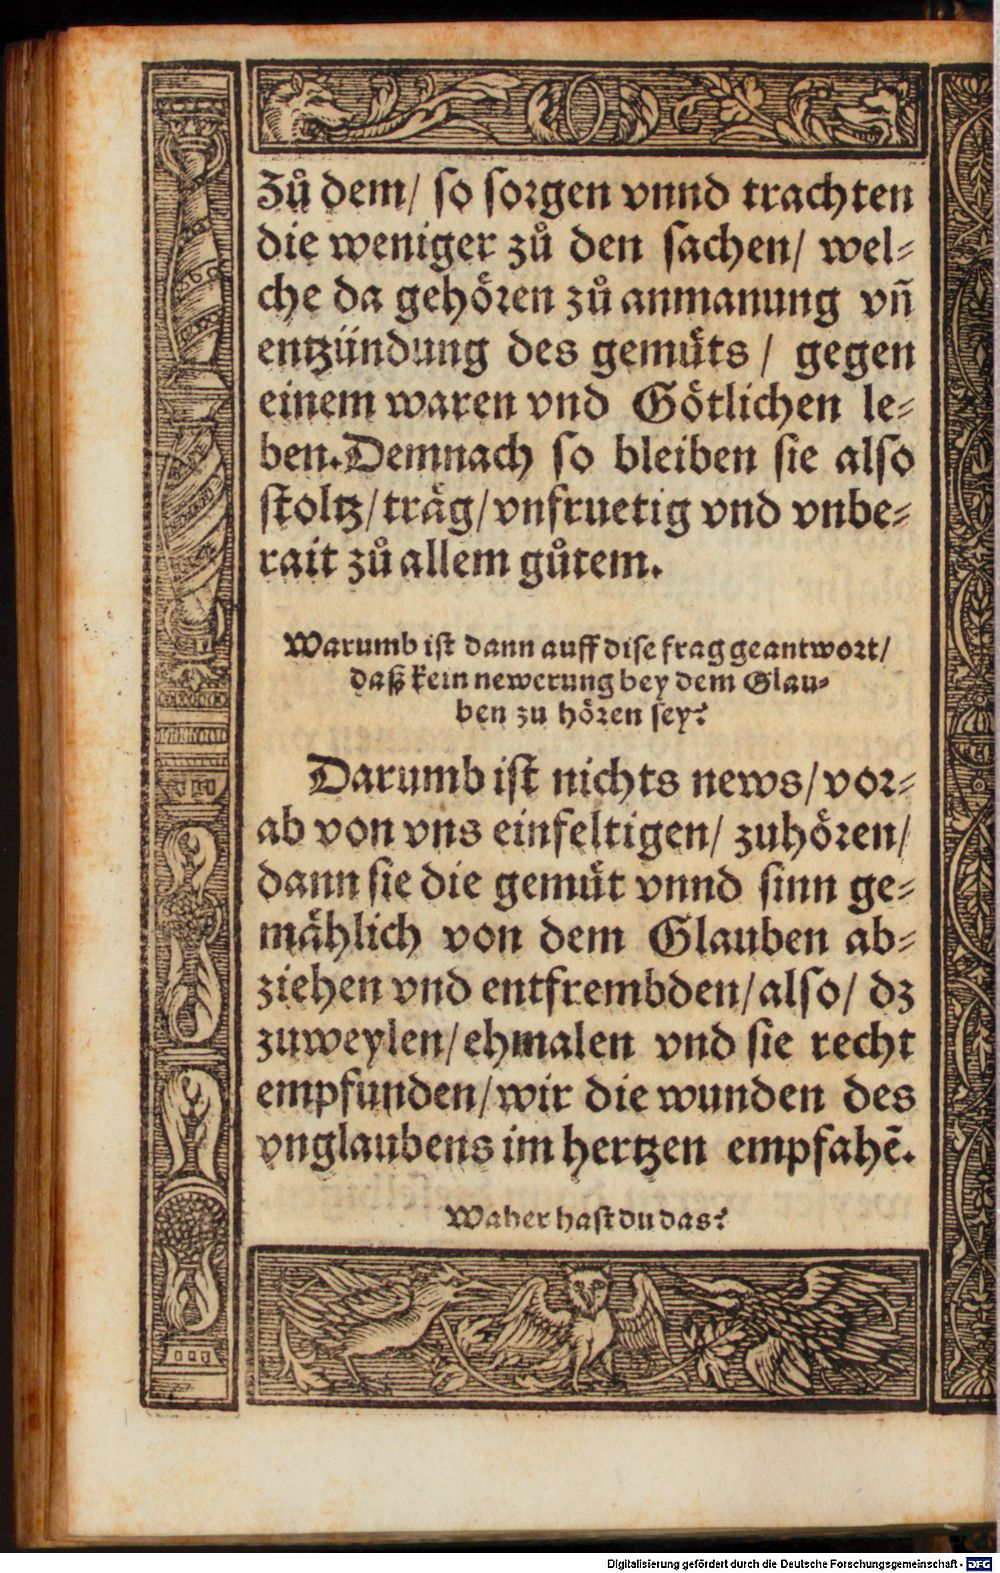 Zů dem/ so sorgen vnnd trachten
die weniger zů den sachen/ wel⸗
che da gehören zů anmanung vñ
entzündung des gemůts / gegen
einem waren vnd Götlichen le⸗
ben. Demnach so bleiben sie also
stoltz/ träg/ vnfruetig vnd vnbe⸗
rait zů allem gůtem.
Warumb ist dann auff dise frag geantwort/
daß kein newerung bey dem Glau⸗
ben zu hören sey?
Darumb ist nichts news/ vor⸗
ab von vns einfeltigen/ zuhören/
dann sie die gemůt vnnd sinn ge⸗
mählich von dem Glauben ab⸗
ziehen vnd entfrembden/ also/ dz
zuweylen/ ehmalen vnd sie recht
empfunden/ wir die wunden des
vnglaubens im hertzen empfahẽ.
Waher hast du das?
Digitalisierung gefördert durch die Deutsche Forschungsgemeinschaft - DFG